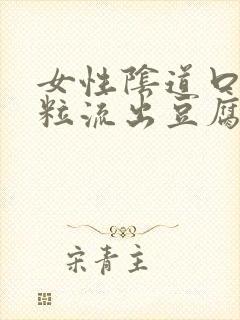 女性陰道口
粒流出豆腐
宋青主